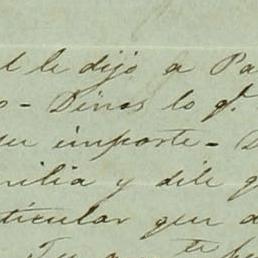 l le dijó a Pa
o - Dinos lo q.
su importe -
milia y dile q
ticular que a